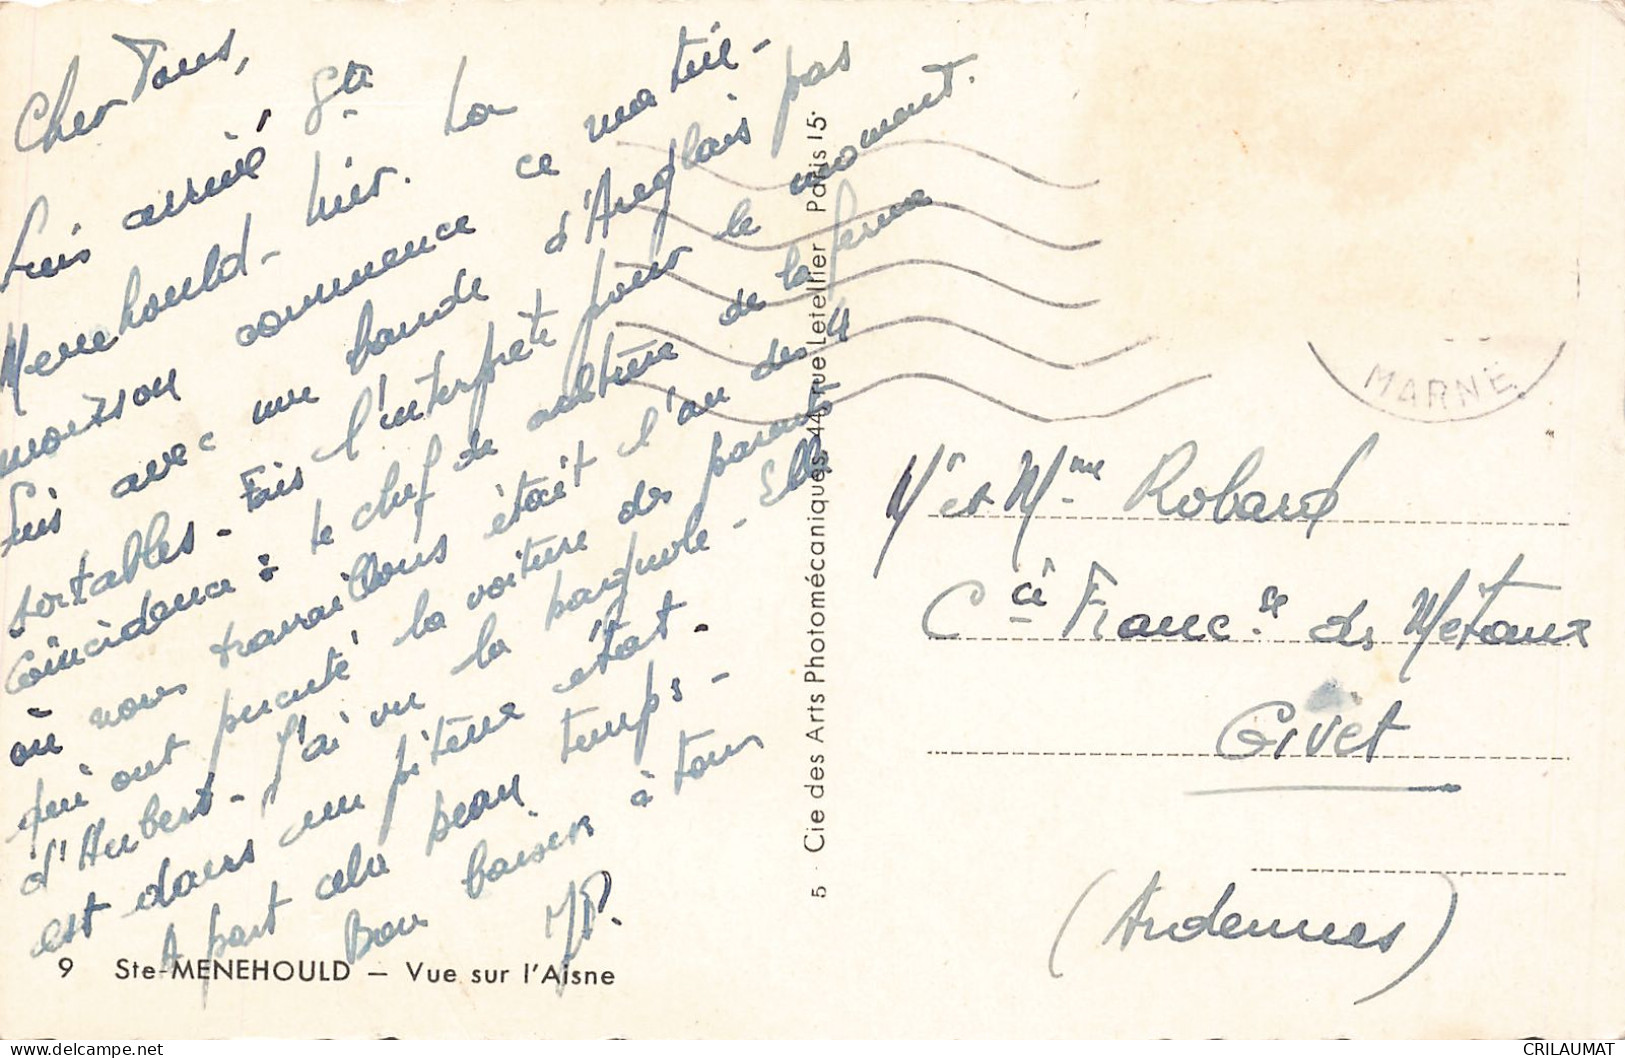 Cher Tous,
Suis arrivé Ste
Menehould - hier. La
moisson commence ce matin -
Suis avec une bande d'Anglais pas
sortables - Fais l'interprète pour le moment.
Coïncidence : le chef de culture de la ferme
où nous travaillons était l'un des 4
qui ont percuté la voiture des parents
d'Hubert - J'ai vu la bagnole - Elle
est dans un piteux état -
A part cela beau temps -
Bon baiser à tous
JP.
9 Ste-MENEHOULD – Vue sur l'Aisne
5 - Cie des Arts Photomécaniques, 44, rue Letellier Paris 15.
MARNE
Mr et Mme Robard
Cie Franc.se des Métaux
Givet
(Ardennes)
CRILAUMAT